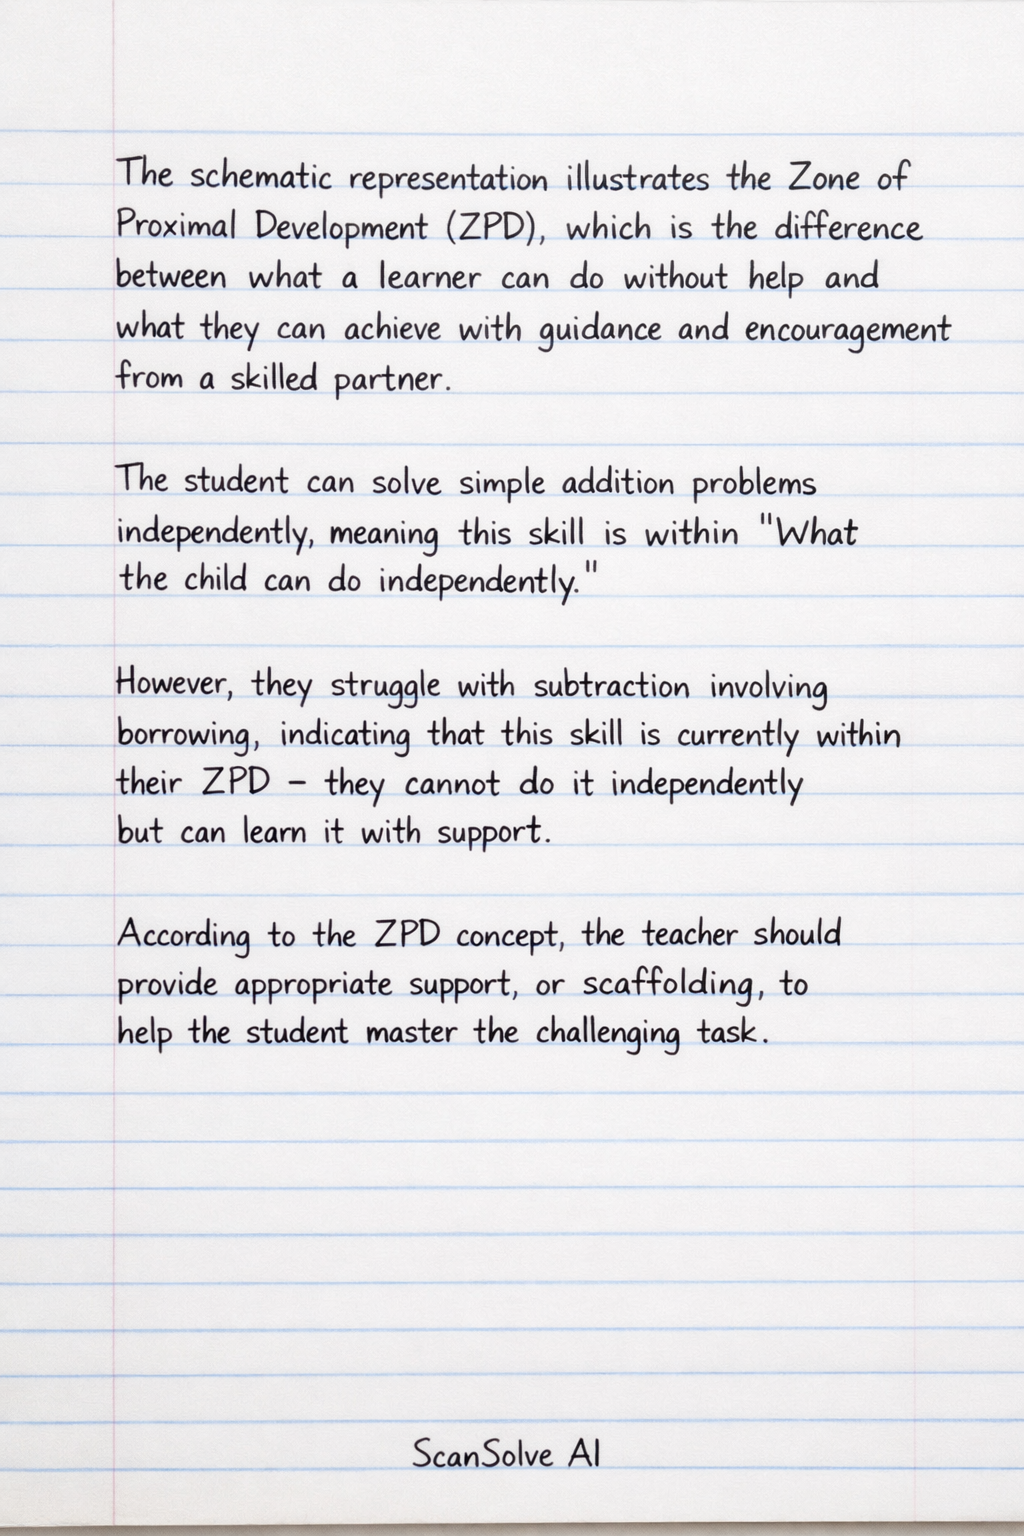 The schematic representation illustrates the Zone of
Proximal Development (ZPD), which is the difference
between what a learner can do without help and
what they can achieve with guidance and encouragement
from a skilled partner.
The student can solve simple addition problems
independently, meaning this skill is within "What
the child can do independently."
However, they struggle with subtraction involving
borrowing, indicating that this skill is currently within
their ZPD – they cannot do it independently
but can learn it with support.
According to the ZPD concept, the teacher should
provide appropriate support, or scaffolding, to
help the student master the challenging task.
ScanSolve AI